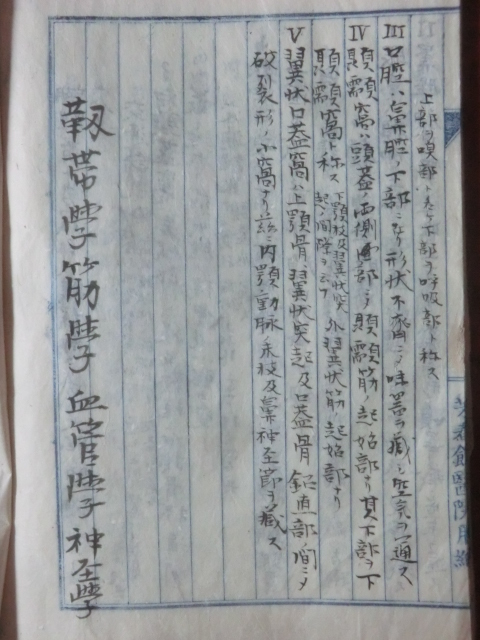 上部ヲ嗅部ハ云ヒ下部ヲ呼吸部ト称ス
III 口腔ハ鼻腔ノ下部ニアリ形状不齊ニシ味器ヲ藏シ空氣ヲ通ス
IV 顳顬窩ハ頭蓋ノ両側面部ヲ顳顬筋ノ起始部ナリ其下部ヲ下
顳顬窩ト称ス 下顎枝及翼状突起ノ間隙ヲ云フ 外翼状筋ノ起始部ナリ
V 翼状口蓋窩ハ上顎骨、翼状突起及口蓋骨鉛直部ノ間ニメ
破裂形ノ小窩ナリ茲ニ内顎動脈ノ末枝及鼻神至節ヲ藏ス
靱帯學筋學血管學神至學
醫院用紙